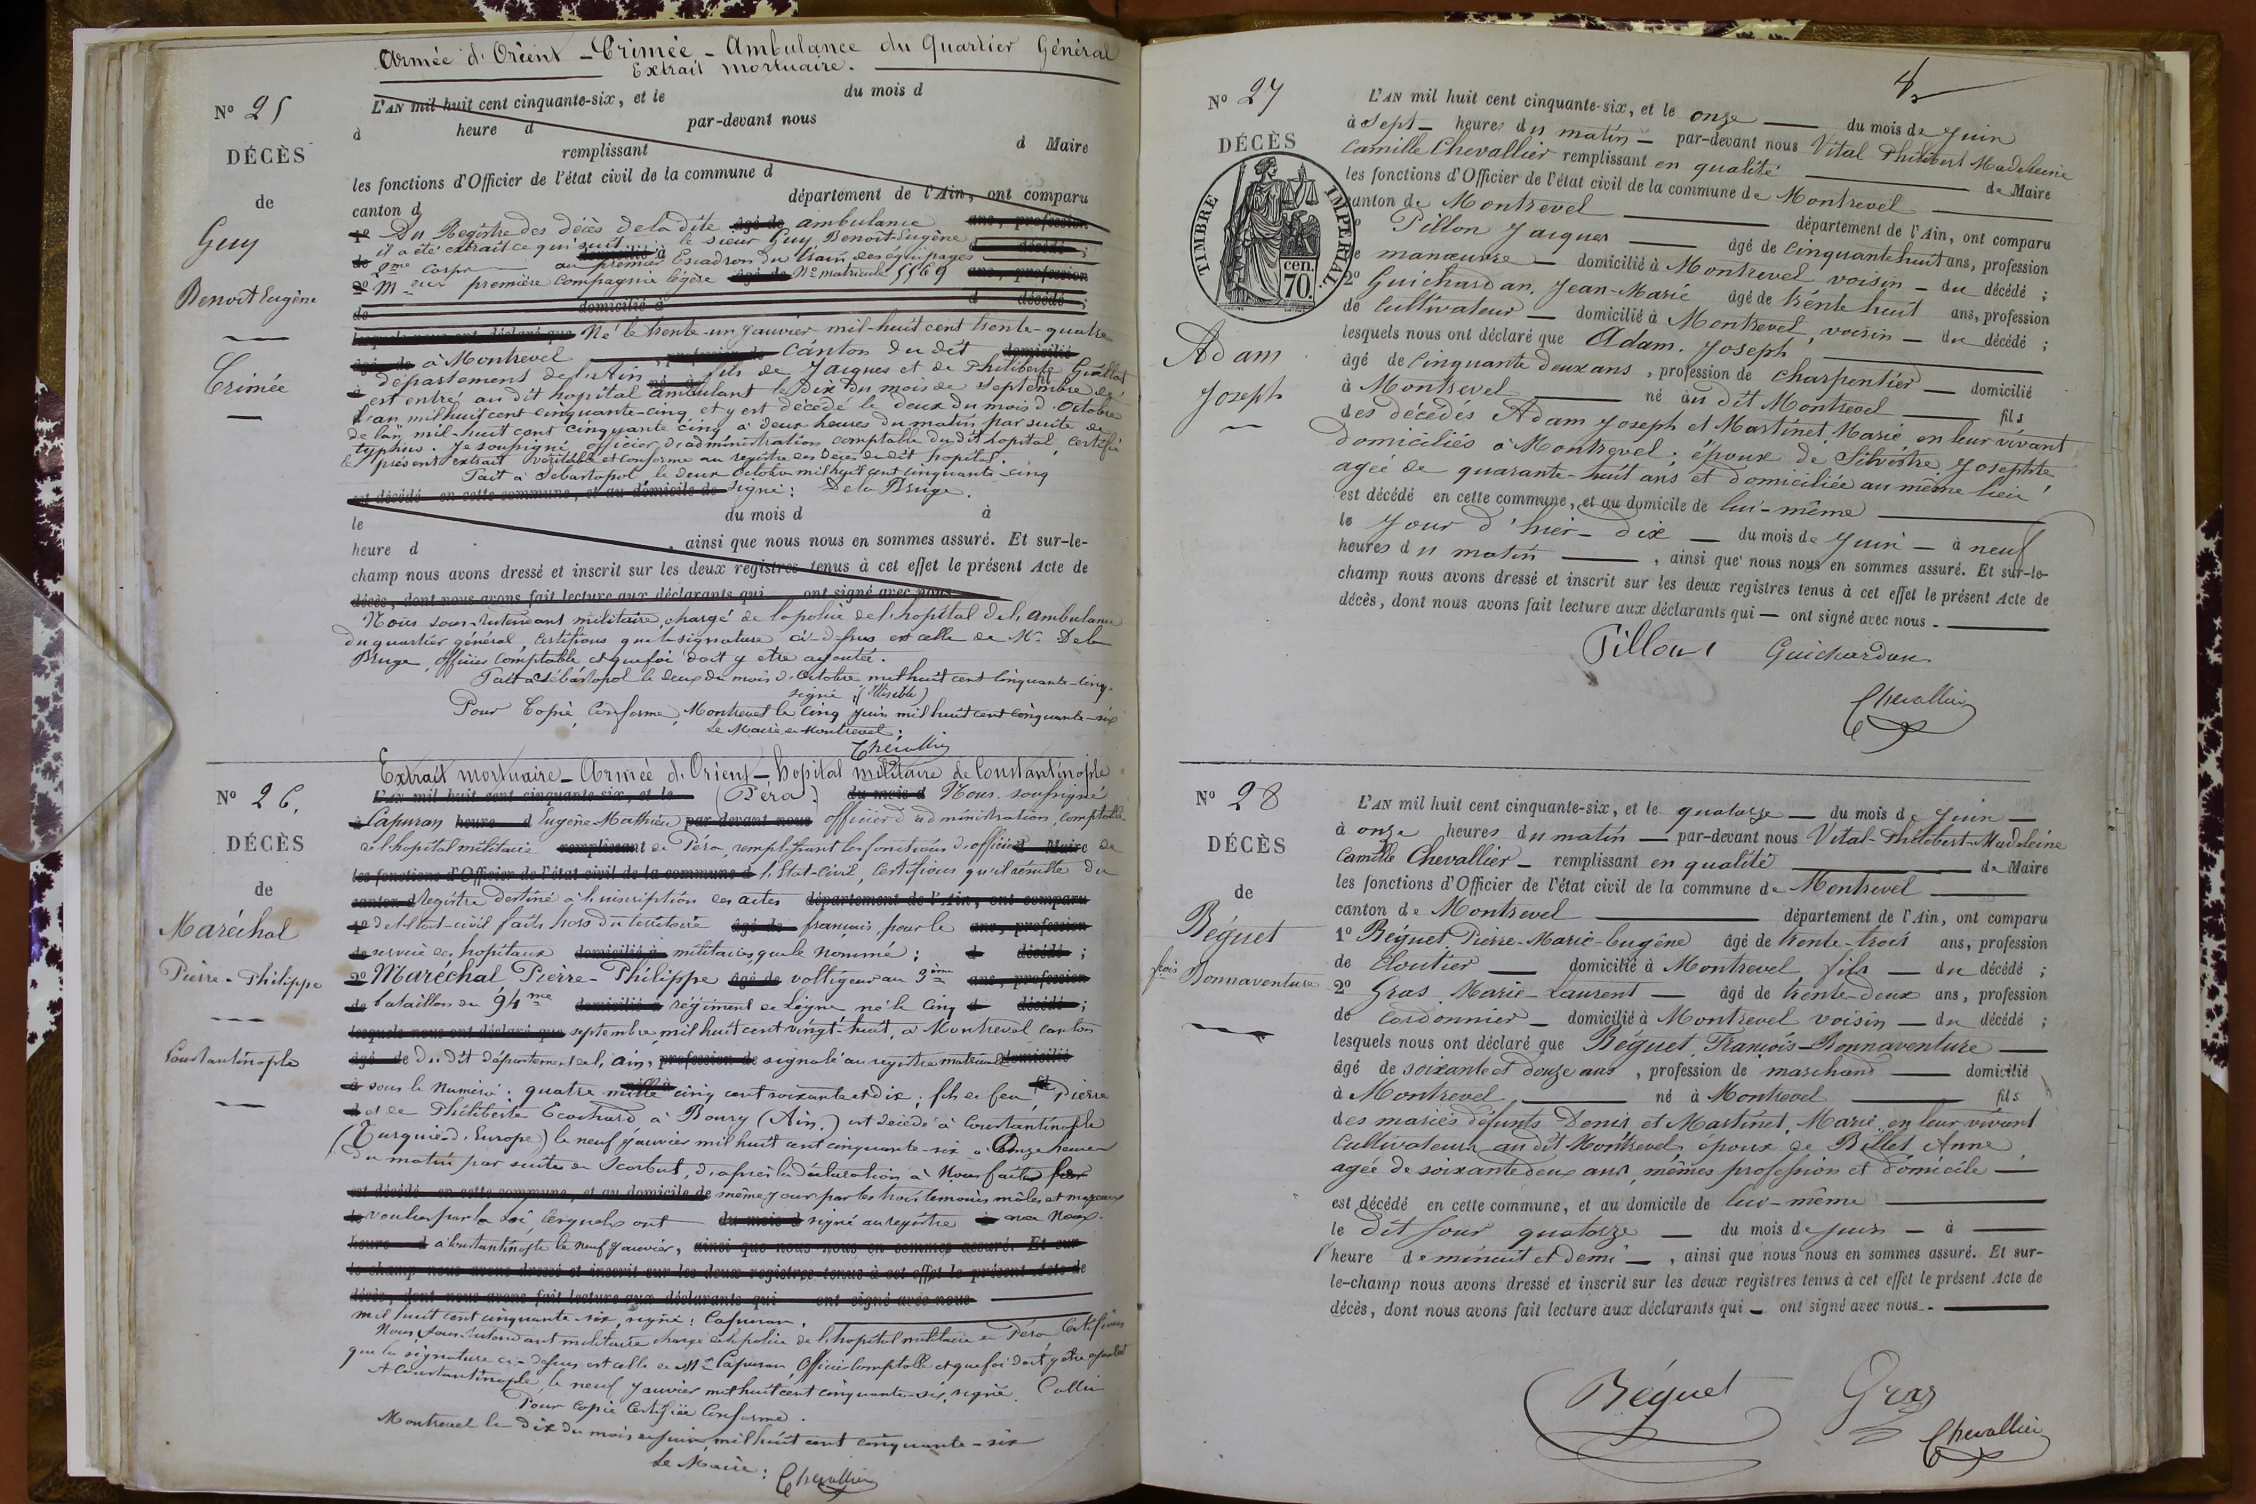 Armée d'Orient - Crimée - Ambulance du Quartier Général
Extrait mortuaire.
N° 25
DÉCÈS
de
Guy
Benoit Eugène
Crimée
L'AN mil huit cent cinquante-six, et le du mois d
à heure d par-devant nous
remplissant d Maire
les fonctions d'Officier de l'état civil de la commune d
canton d département de l'Ain, ont comparu
1° Du Registre des décès de la dite âgé de ambulance ans, profession
il a été extrait ce qui suit : le sieur Guy Benoit-Eugène décédé ;
de corps au premier Escadron du train des équipages
2° première Compagnie légère âgé de N° matricule 5569 ans, profession
de domicilié à d décédé ;
lesquels nous ont déclaré que Né le trente-un Janvier mil-huit cent trente-quatre
âgé de à Montrevel , profession de Canton du dit domicilié
département de l'Ain fils de Jacques et de Philiberte Guillot
est entré au dit hopital ambulant le dix du mois de Septembre de
l'an mil huit cent cinquante-cinq et y est décédé le deux du mois d'Octobre
de l'an mil-huit cent cinquante cinq à deux heures du matin par suite de
typhus. Je soussigné officier d'administration comptable du dit hopital, certifié
le présent extrait véritable et conforme au registre des décès du dit hopital.
Fait à Sébastopol le deux Octobre mil huit cent cinquante-cinq
est décédé en cette commune, et au domicile de Signé : De la Bruge.
le du mois d à
heure d , ainsi que nous nous en sommes assuré. Et sur-le-
champ nous avons dressé et inscrit sur les deux registres tenus à cet effet le présent Acte de
décès, dont nous avons fait lecture aux déclarants qui ont signé avec nous
Nous sous-intendant militaire, chargé de la police de l'hopital de l'ambulance
du quartier général, Certifions que la signature ci-dessus est celle de Mr. De la
Bruge, Officier Comptable et que foi doit y être ajoutée.
Fait à Sébastopol le deux du mois d'Octobre mil huit cent cinquante-cinq.
signé (illisible)
Pour Copie Conforme, Montrevel le cinq Juin mil huit cent cinquante-six
Le Maire de Montrevel :
Chevallier
N° 26.
DÉCÈS
de
Maréchal
Pierre-Philippe
Constantinople
Extrait mortuaire - Armée d'Orient - hopital militaire de Constantinople
L'AN mil huit cent cinquante-six, et le (Péra). du mois d Nous soussigné
à Capuran heure d Eugène Mathieu par-devant nous officier d'administration, comptable
de l'hopital militaire remplissant de Péra, remplissant les fonctions d'officier d Maire de
les fonctions d'Officier de l'état civil de la commune d l'Etat-Civil, Certifions qu'il résulte du
canton d registre destiné à l'inscription des actes département de l'Ain, ont comparu
1° de l'Etat-civil faits hors du territoire âgé de français pour le ans, profession
de service des hopitaux domicilié à militaires, que le nommé : d décédé ;
2° Maréchal Pierre-Philippe âgé de voltigeur au 3ème ans, profession
de bataillon du 94me domicilié à régiment de Ligne né le cinq d décédé ;
lesquels nous ont déclaré que septembre mil huit cent vingt-huit, à Montrevel canton
âgé de du dit département de l'Ain, profession de signalé au registre matricule domicilié
à sous le numéro : quatre mille cinq cent soixante et dix ; fils de feu Pierre
et de Philiberte Ecochard à Bourg (Ain.) est décédé à Constantinople
(Turquie d'Europe) le neuf Janvier mil huit cent cinquante-six à Onze heures
du matin par suite de Scorbut, d'après la déclaration à Nous faite
est décédé en cette commune, et au domicile de même jour par les trois témoins mâles et majeurs
le voulus par la Loi, lesquels ont du mois d signé au registre à avec Nous.
heure d à Constantinople le neuf Janvier, ainsi que nous nous en sommes assuré. Et sur-
le-champ nous avons dressé et inscrit sur les deux registres tenus à cet effet le présent Acte de
décès, dont nous avons fait lecture aux déclarants qui ont signé avec nous
mil huit cent cinquante-six, signé : Capuran.
Nous, Sous-intendant militaire chargé de la police de l'hopital militaire de Péra Certifions
que la signature ci-dessus est celle de Mr Capuran, Officier Comptable et que foi doit y être ajoutée
A Constantinople, le neuf Janvier mil huit cent cinquante-six, signé
Pour copie Certifiée Conforme.
Montrevel le dix du mois de Juin mil huit cent cinquante-six
Le Maire : Chevallier
N° 27
DÉCÈS
TIMBRE IMPÉRIAL
70 cen.
Adam
Joseph
L'AN mil huit cent cinquante-six, et le onze du mois de Juin
à sept heures du matin par-devant nous Vital Philibert Madeleine
Camille Chevallier remplissant en qualité de Maire
les fonctions d'Officier de l'état civil de la commune de Montrevel
canton de Montrevel département de l'Ain, ont comparu
1° Pillon Jacques âgé de cinquante huit ans, profession
de manœuvre domicilié à Montrevel voisin du décédé ;
2° Guichardan, Jean-Marie âgé de trente huit ans, profession
de Cultivateur domicilié à Montrevel, voisin du décédé ;
lesquels nous ont déclaré que Adam, Joseph
âgé de cinquante deux ans, profession de charpentier domicilié
à Montrevel né au dit Montrevel fils
des décédés Adam Joseph et Martinet Marie en leur vivant
domiciliés à Montrevel ; époux de Silvestre Josephte
agée de quarante-huit ans et domiciliée au même lieu
est décédé en cette commune, et au domicile de lui-même
le jour d'hier - dix du mois de Juin à neuf
heures du matin , ainsi que nous nous en sommes assuré. Et sur-le-
champ nous avons dressé et inscrit sur les deux registres tenus à cet effet le présent Acte de
décès, dont nous avons fait lecture aux déclarants qui ont signé avec nous.
Pillon Guichardan
Chevallier
N° 28
DÉCÈS
de
Béguet
fois Bonnaventure
L'AN mil huit cent cinquante-six, et le quatorze du mois de Juin
à onze heures du matin par-devant nous Vital-Philibert-Madeleine
Camille Chevallier remplissant en qualité de Maire
les fonctions d'Officier de l'état civil de la commune de Montrevel
canton de Montrevel département de l'Ain, ont comparu
1° Béguet Pierre-Marie-Eugène âgé de trente-trois ans, profession
de cloutier domicilié à Montrevel, fils du décédé ;
2° Gras, Marie-Laurent âgé de trente-deux ans, profession
de cordonnier domicilié à Montrevel voisin du décédé ;
lesquels nous ont déclaré que Béguet, François-Bonnaventure
âgé de soixante et douze ans, profession de marchand domicilié
à Montrevel né à Montrevel fils
des mariés défunts Denis et Martinet, Marie en leur vivant
Cultivateurs au dit Montrevel, époux de Billet Anne
agée de soixante deux ans, mêmes profession et domicile
est décédé en cette commune, et au domicile de lui-même
le dit jour quatorze du mois de juin à
l'heure de minuit et demi , ainsi que nous nous en sommes assuré. Et sur-
le-champ nous avons dressé et inscrit sur les deux registres tenus à cet effet le présent Acte de
décès, dont nous avons fait lecture aux déclarants qui ont signé avec nous.
Béguet Gras
Chevallier